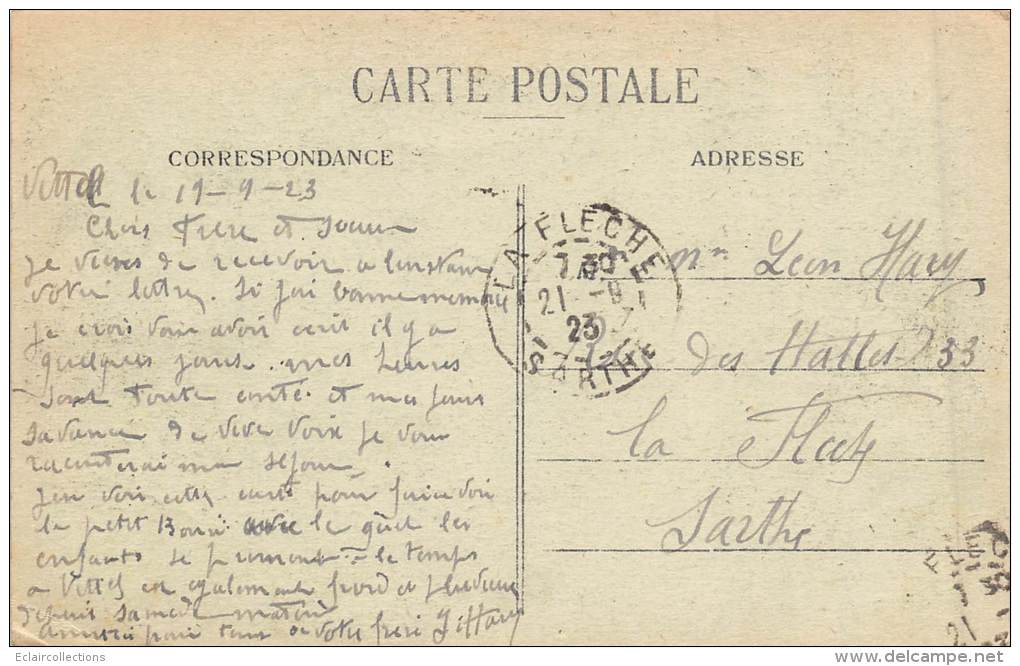 CARTE POSTALE
CORRESPONDANCE
ADRESSE
Vittel le 19-9-23
Chers Frere et Soeur
Je viens de recevoir a l'instant
votre lettre. Si j'ai bonne memoire
je crois vous avoir ecrit il y a
quelques jours. mes heures
sont toute conté et mes jours
s'avance de vive voix je vous
raconterai mon séjour.
J'en voi cette carte pour faire voir
le petit avec le quel les
enfants se promene le temps
a Vittel est egalement froid et pluvieux
depuis samedi matin
pour tous votre frere Hary
LA FLECHE
7 30
21 -9
23
SARTHE
Mr Leon Hary
des Halles 33
la Fleche
Sarthe
21
Eclaircollections
www.delcampe.net